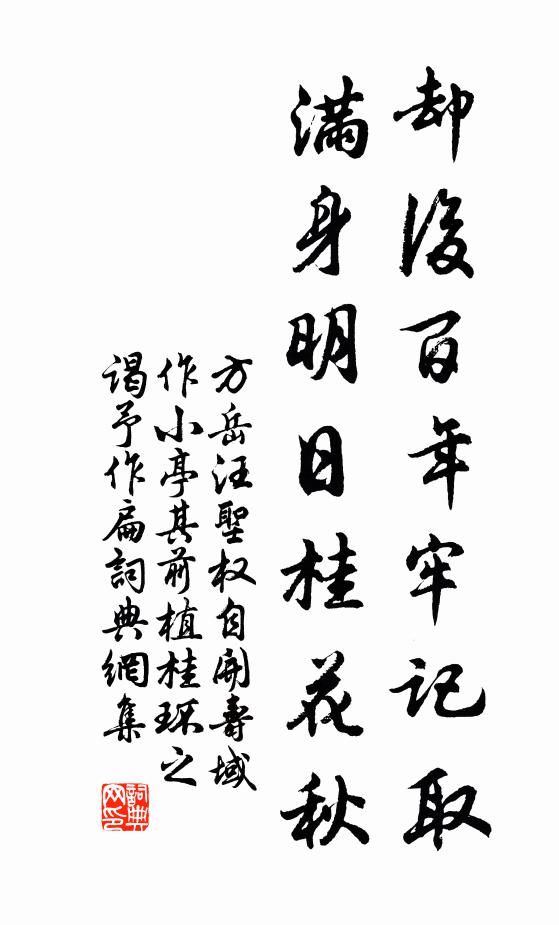 却後百年牢記取
滿身明日桂花秋
方岳汪聖权自開壽域
作小亭其前植桂环之
谒予作扁詞典網集
詞典
网印